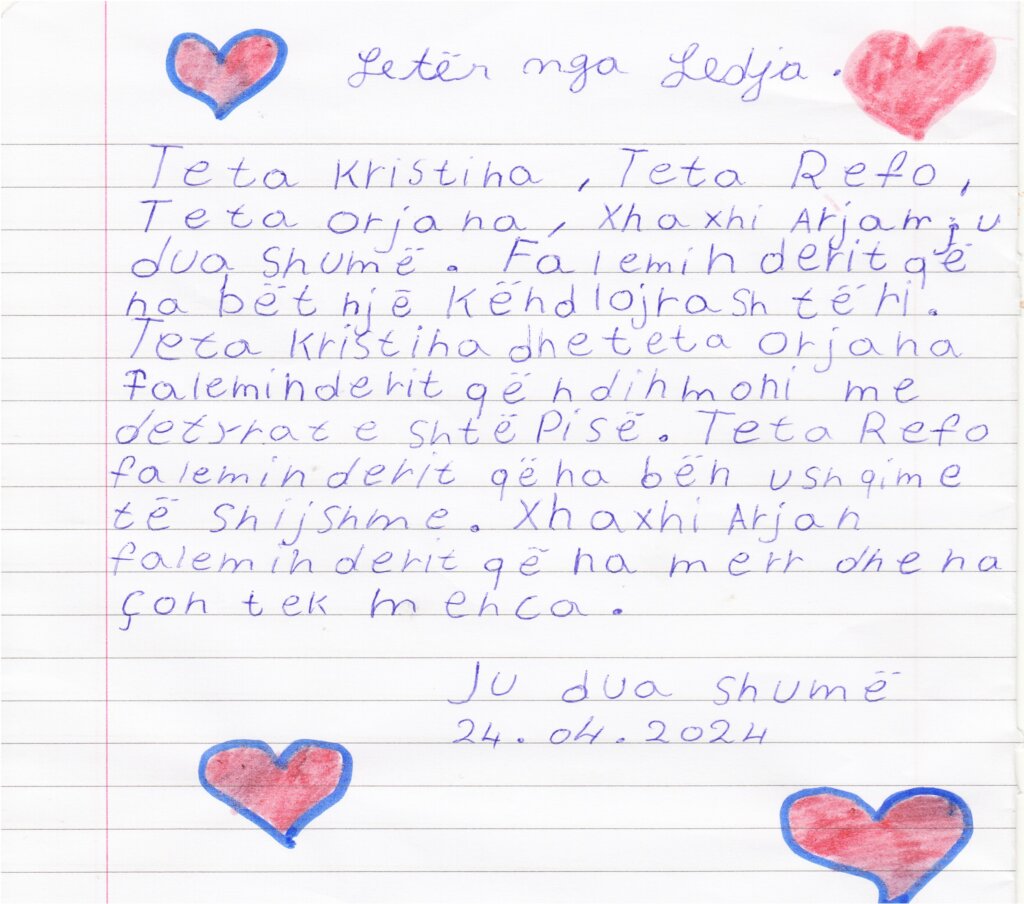 Letër nga Ledja.
Teta Kristina, Teta Refo,
Teta Orjana, Xhaxhi Arjan ju
dua shumë. Faleminderit që
na bët një Këndlojrash të ri.
Teta Kristina dhe teta Orjana
faleminderit që ndihmoni me
detyrat e shtëpisë. Teta Refo
faleminderit që na bën ushqime
të shijshme. Xhaxhi Arjan
faleminderit që na merr dhe na
çon tek menca.
Ju dua shumë
24.04.2024